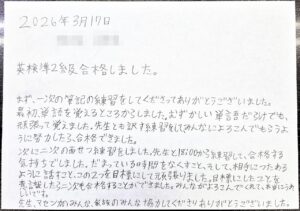 2026年3月17日
英検準2級合格しました。
まず、一次の筆記の練習をしてくださってありがとうございました。
最初、単語を覚えるところからしました。むずかしい単語だらけでも、
頑張って覚えました。先生とも訳す練習をして
努力したら、合格できました。
次に二次の面せつ練習をしました。先生と18:00から練習して、合格する
気持ちでしました。だまっている時間をなくすこと、そして、相手につたわる
ように話すこと、この2つを目標にして頑張りました。目標にしたことを
意識したら二次も合格することができました。みんながよろこんでくれて、本当にうれしい
です。
先生、マセンがいみんな、家族のみんな協力してくださりありがとうございました。